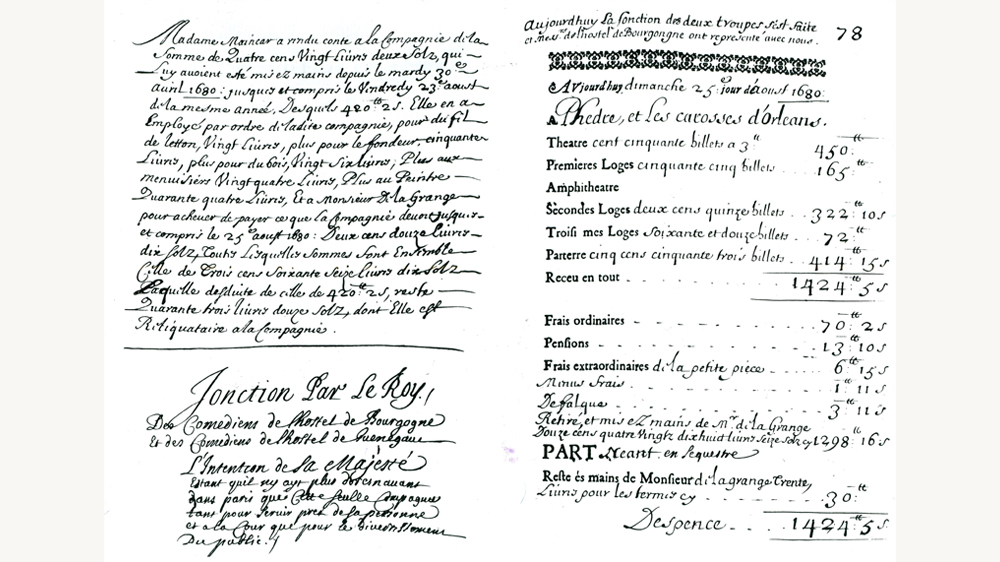 Madame Moincar a rendu conte a la Compagnie de la
Somme de Quatre cens Vingt Liures deux Solz, qui
Luy auoient esté mis ez mains depuis le mardy 30e
auril 1680: jusques et compris le Vendredy 23e aoust
de la mesme année, Desquels 420tt 2s. Elle en a
Employé par ordre de ladite compagnie, pour du fil
de letton, Vingt Liures, plus pour le fondeur, cinquante
Liures, plus pour du bois, Vingt Six liures, Plus aux
menuisiers Vingt quatre Liures, Plus au Peintre
Quarante quatre Liures, Et a Monsieur De la Grange
pour acheuer de payer ce que la Compagnie deuoit jusques
et compris le 25e aoust 1680: Deux cens douze Liures
dix Solz, Toutes Lesquelles Sommes Sont Ensemble
Celle de Trois cens Soixante Seize Liures dix Solz
Laquelle desduite de celle de 420tt 2s, reste
Quarante trois liures douze Solz, dont Elle est
Reliquataire a la Compagnie.
Jonction Par Le Roy,
Des Comediens de l'hostel de Bourgogne
Et des Comediens de l'hostel de Guenegaud
L'Intention de Sa Majesté
Estant quil ny ayt plus doresnauant
dans paris que Cette seulle Compagnie
tant pour seruir pres de sa personne
et a la Cour que pour le Diuertissement
Du public.
Aujourdhuy La Jonction des deux troupes s'est faite
et Mesrs. de l'hostel de Bourgongne ont representé auec nous.
78
AVjourd'huy dimanche 25e jour de aoust 1680.
A Phedre, et Les carosses d'Orleans.
Theatre cent cinquante billets a 3tt 450:tt
Premieres Loges cinquante cinq billets . 165:tt
Amphitheatre
Secondes Loges deux cens quinze billets . . 322:tt 10s
Troisiémes Loges Soixante et douze billets . . 72:tt
Parterre cinq cens cinquante trois billets . . 414:tt 15s
Receu en tout . . . . 1424:tt 5s
Frais ordinaires . . . . 70:tt 2s
Pensions . . . . 13:tt 10s
Frais extraordinaires de la petite piece . . . 6:tt 15s
Menus frais . . . . 1:tt 11s
Defalque . . . . 3:tt 11s
Retiré, et mis ez mains de Mr. de la Grange
Douze cens quatre Vingtz dix huict liures seize solz cy 1298:tt 16s
PART Neant, en Sequestre
Reste és mains de Monsieur de la grange Trente,
Liures pour les termes cy . . . . 30:tt
Despence . . . 1424:tt 5s.